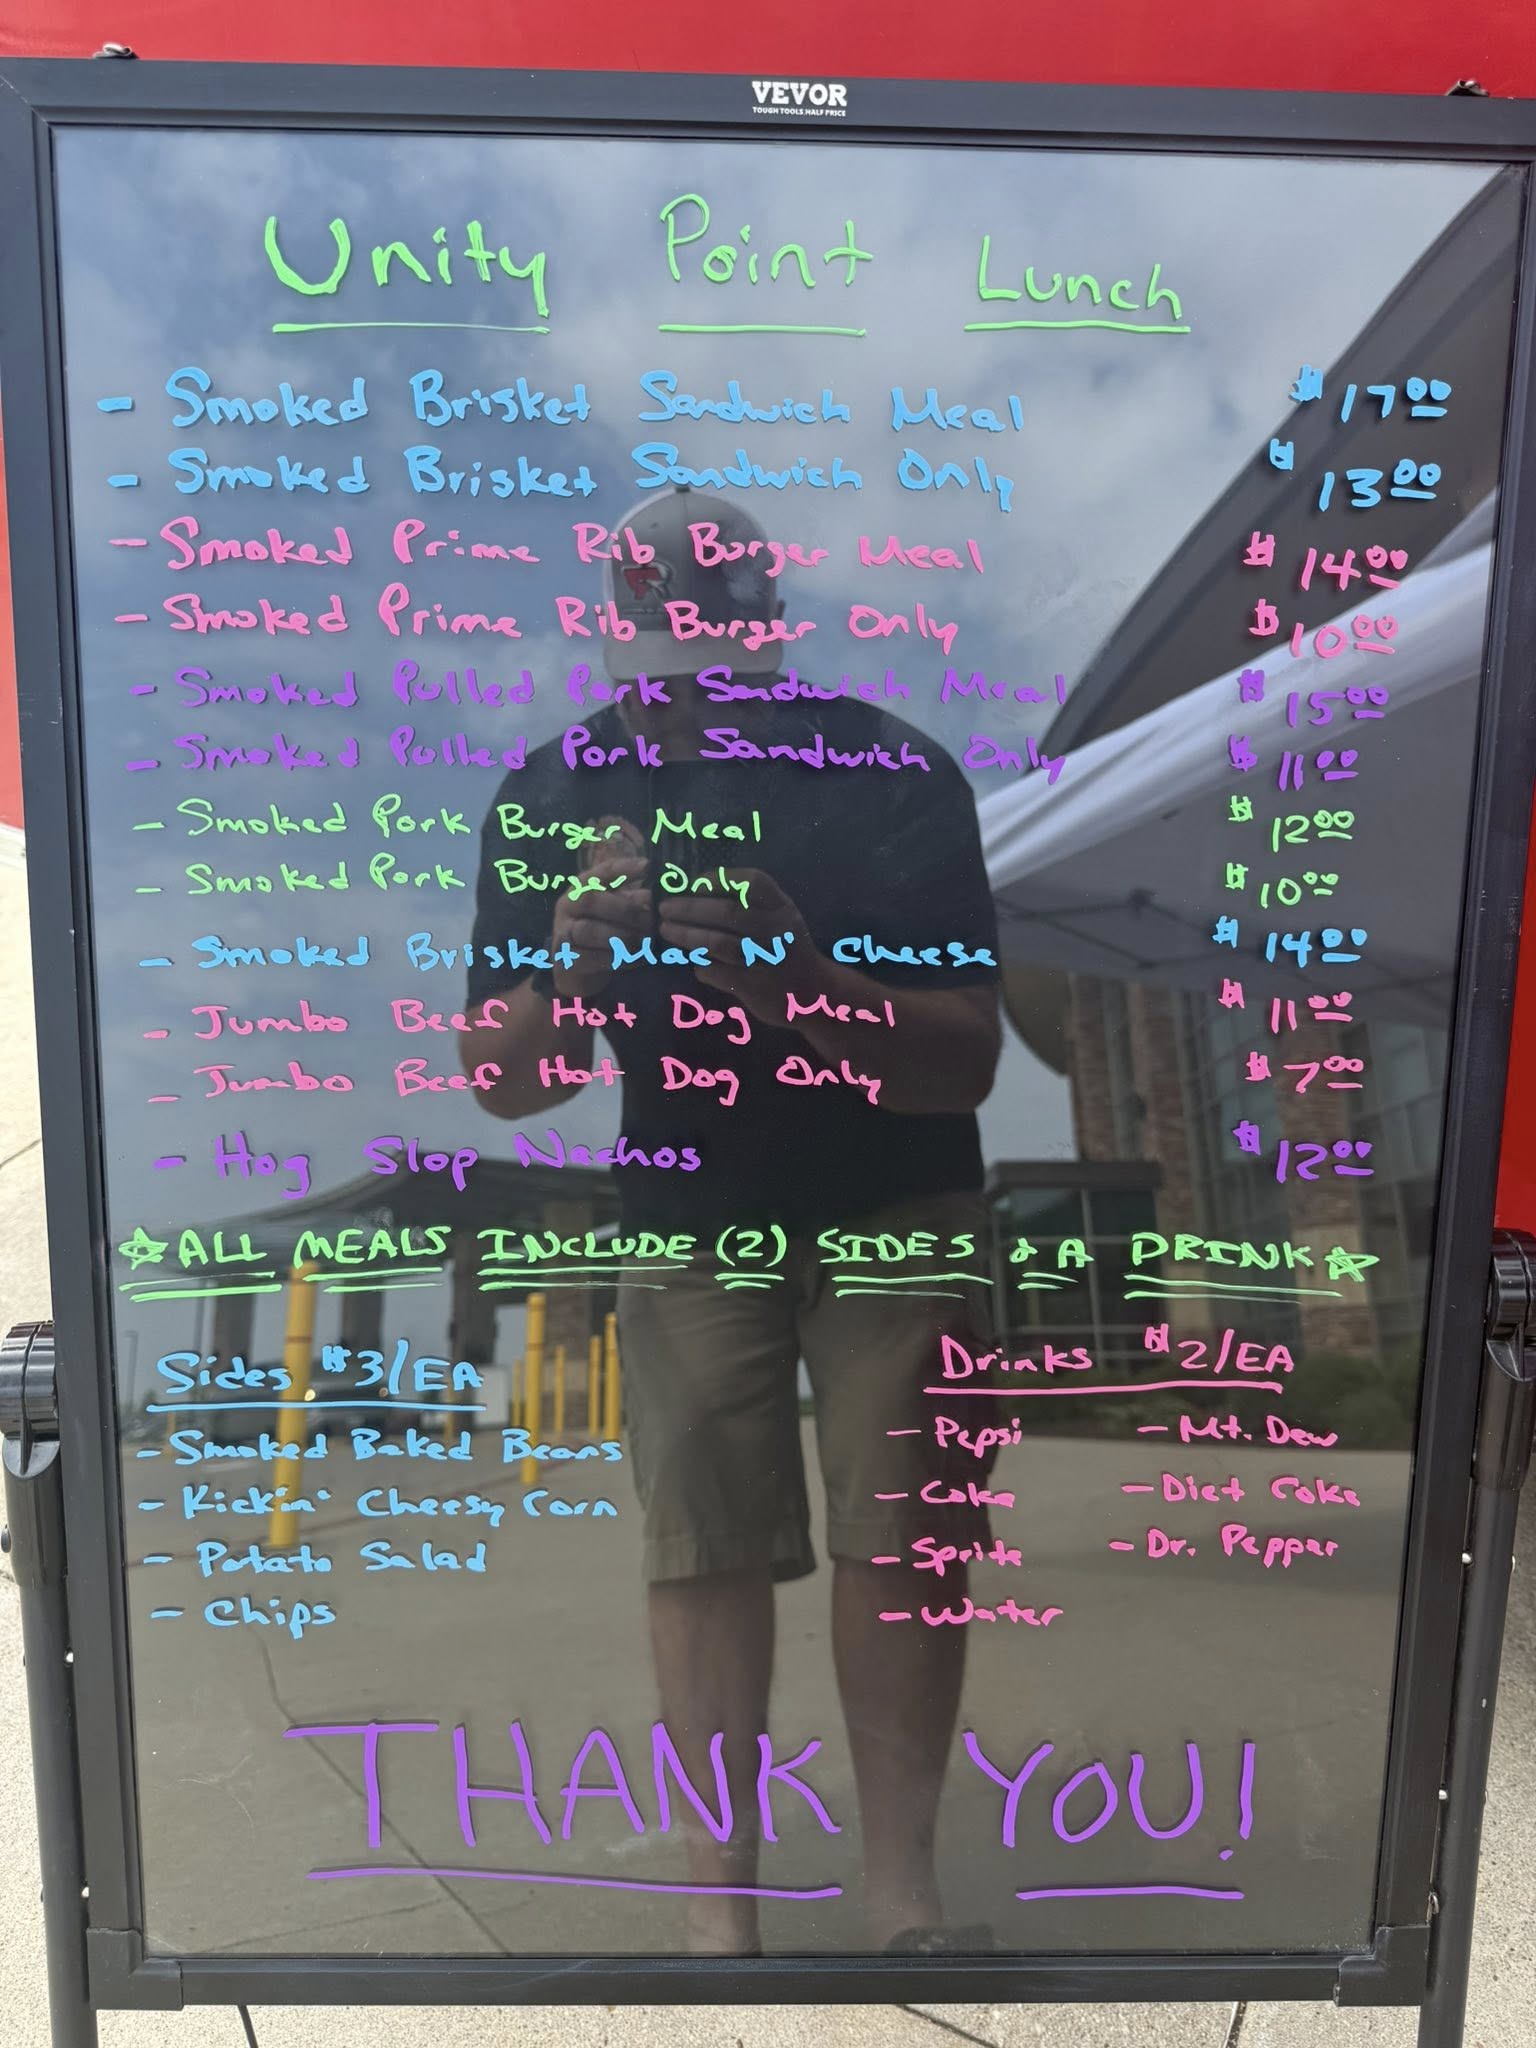 VEVOR
TOUGH TOOLS, HALF PRICE
Unity Point Lunch
- Smoked Brisket Sandwich Meal $17.00
- Smoked Brisket Sandwich Only $13.00
- Smoked Prime Rib Burger Meal $14.00
- Smoked Prime Rib Burger Only $10.00
- Smoked Pulled Pork Sandwich Meal $15.00
- Smoked Pulled Pork Sandwich Only $11.00
- Smoked Pork Burger Meal $12.00
- Smoked Pork Burger Only $10.00
- Smoked Brisket Mac N' Cheese $14.00
- Jumbo Beef Hot Dog Meal $11.00
- Jumbo Beef Hot Dog Only $7.00
- Hog Slop Nachos $12.00
☆ALL MEALS INCLUDE (2) SIDES & A DRINK☆
Sides $3/EA
- Smoked Baked Beans
- Kickin' Cheesy Corn
- Potato Salad
- Chips
Drinks $2/EA
- Pepsi - Mt. Dew
- Coke - Diet Coke
- Sprite - Dr. Pepper
- Water
THANK YOU!